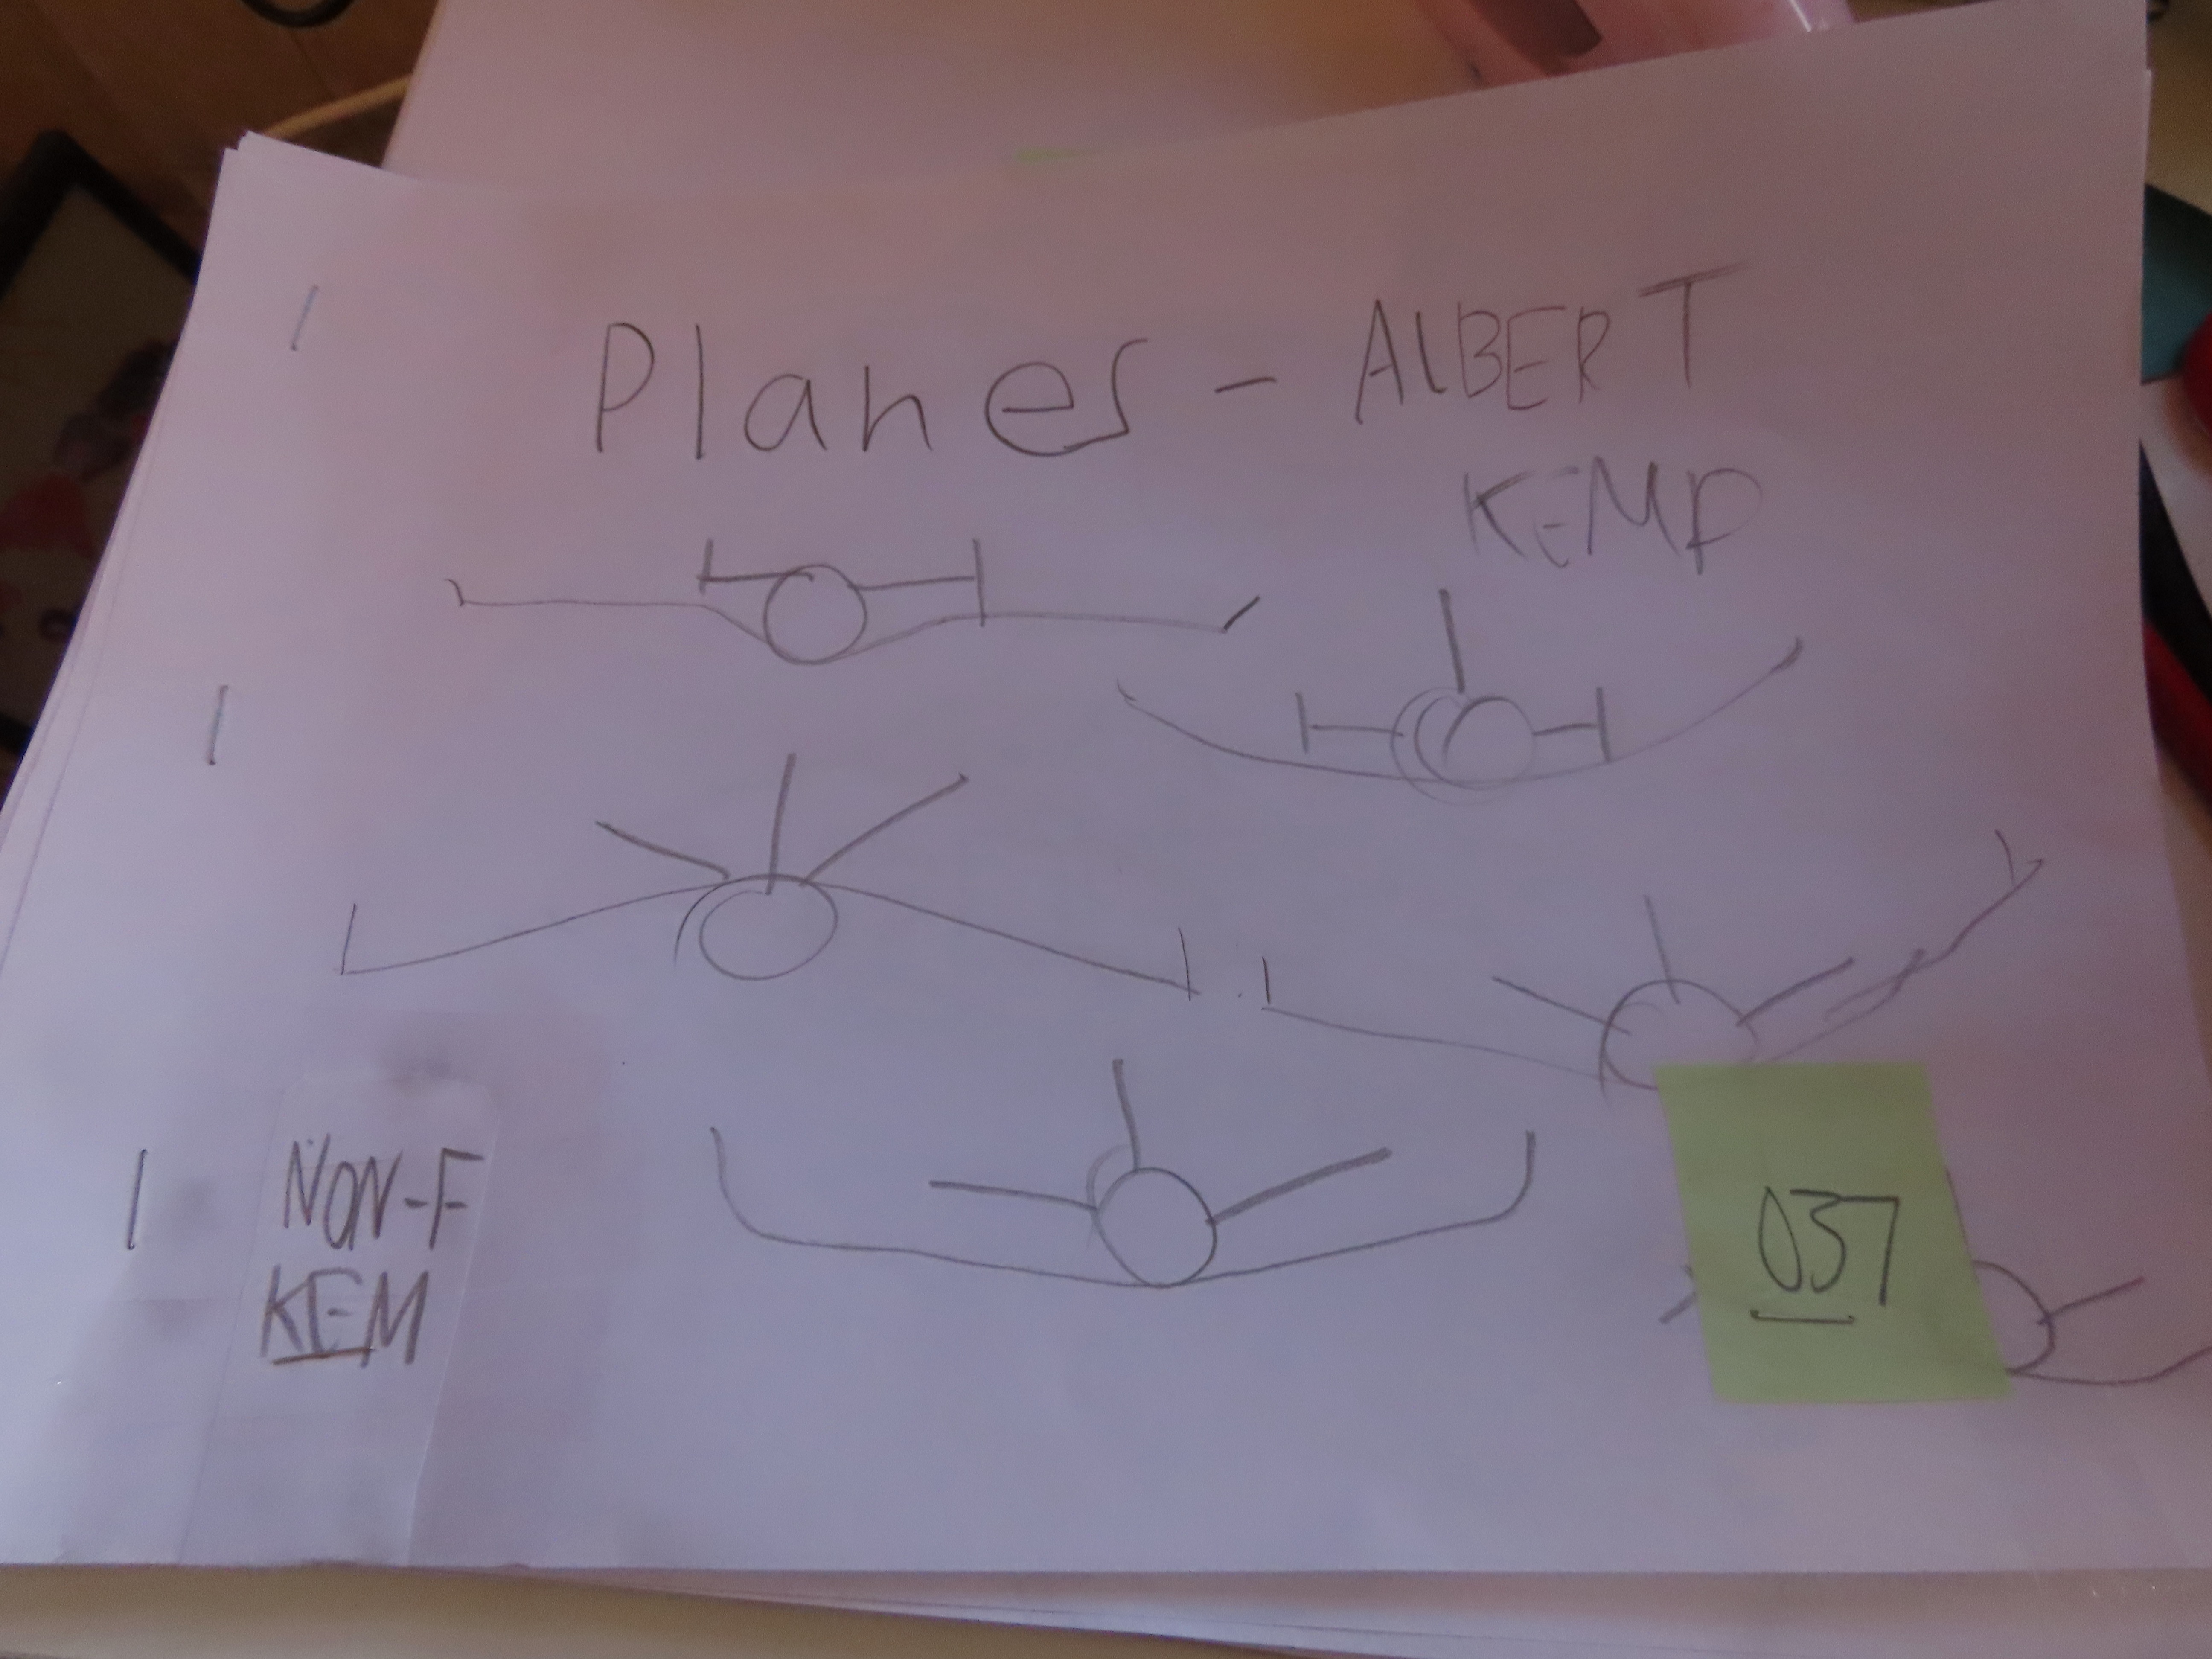 Planes - ALBERT
KEMP
NON-F
KEM
037